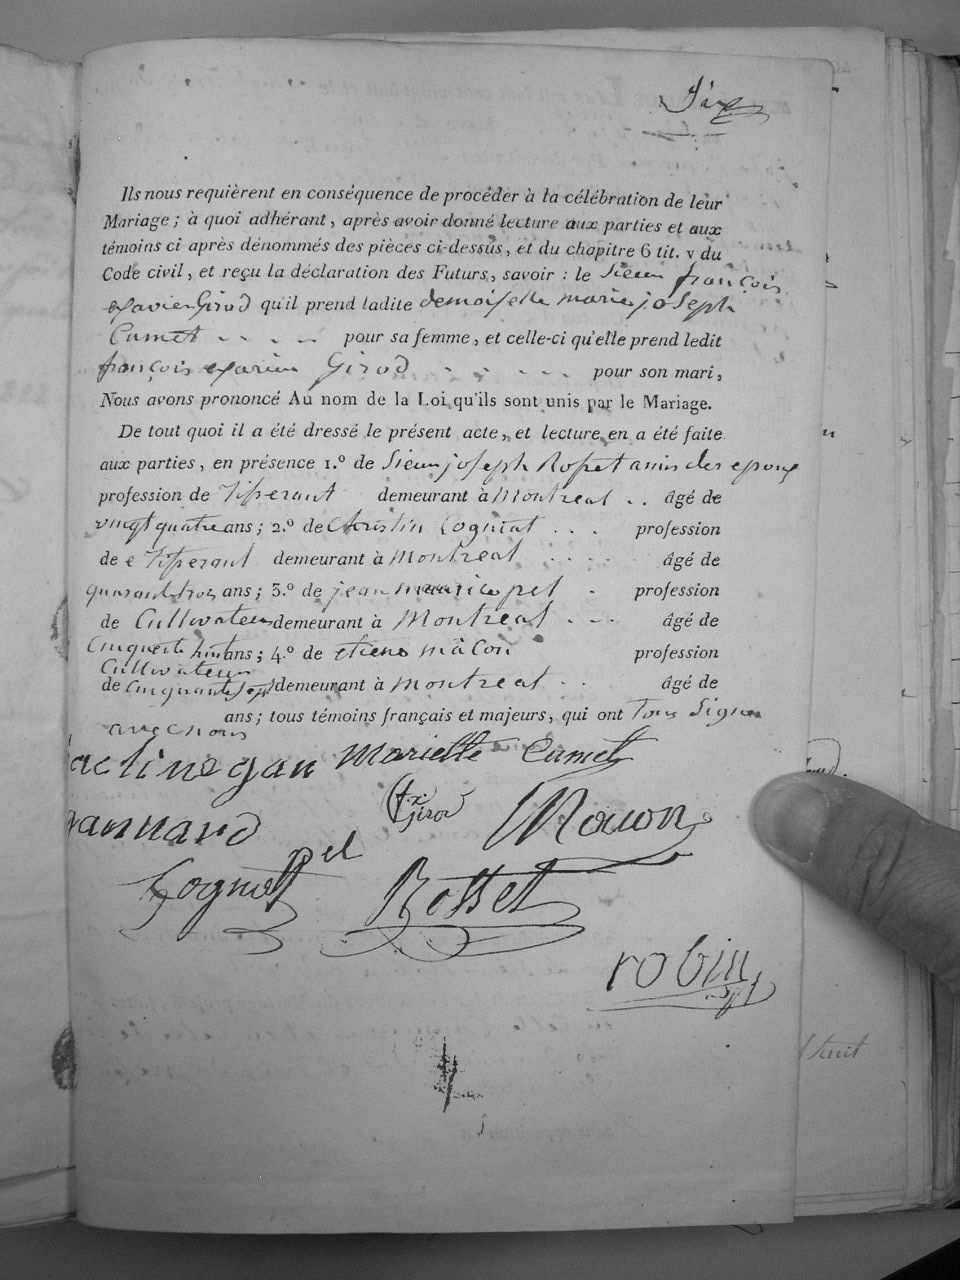 Six
Ils nous requièrent en conséquence de procéder à la célébration de leur
Mariage ; à quoi adhérant, après avoir donné lecture aux parties et aux
témoins ci après dénommés des pièces ci-dessus, et du chapitre 6 tit. v du
Code civil, et reçu la déclaration des Futurs, savoir : le Sieur françois
exavier Girod qu'il prend ladite demoiselle marie joseph
Cumet pour sa femme, et celle-ci qu'elle prend ledit
françois exavier Girod pour son mari,
Nous avons prononcé Au nom de la Loi qu'ils sont unis par le Mariage.
De tout quoi il a été dressé le présent acte, et lecture en a été faite
aux parties, en présence 1.º de Sieur joseph Rosset amis des epoux
profession de Tisserant demeurant à Montreal .. âgé de
vingt quatre ans ; 2.º de Cogniat . . . profession
de Tisserant demeurant à Montreal . . . . âgé de
quarant trois ans ; 3.º de jean maurice pel profession
de Cultivateur demeurant à Montreal . . . âgé de
Cinquente huit ans ; 4.º de etiene mâcon profession
Cultivateur
de Cinquante sept demeurant à Montreal . . âgé de
ans ; tous témoins français et majeurs, qui ont Tous Signe
avec nous
mariette Cumet
fx. girod Macon
pel
Cogniat Rosset
robin